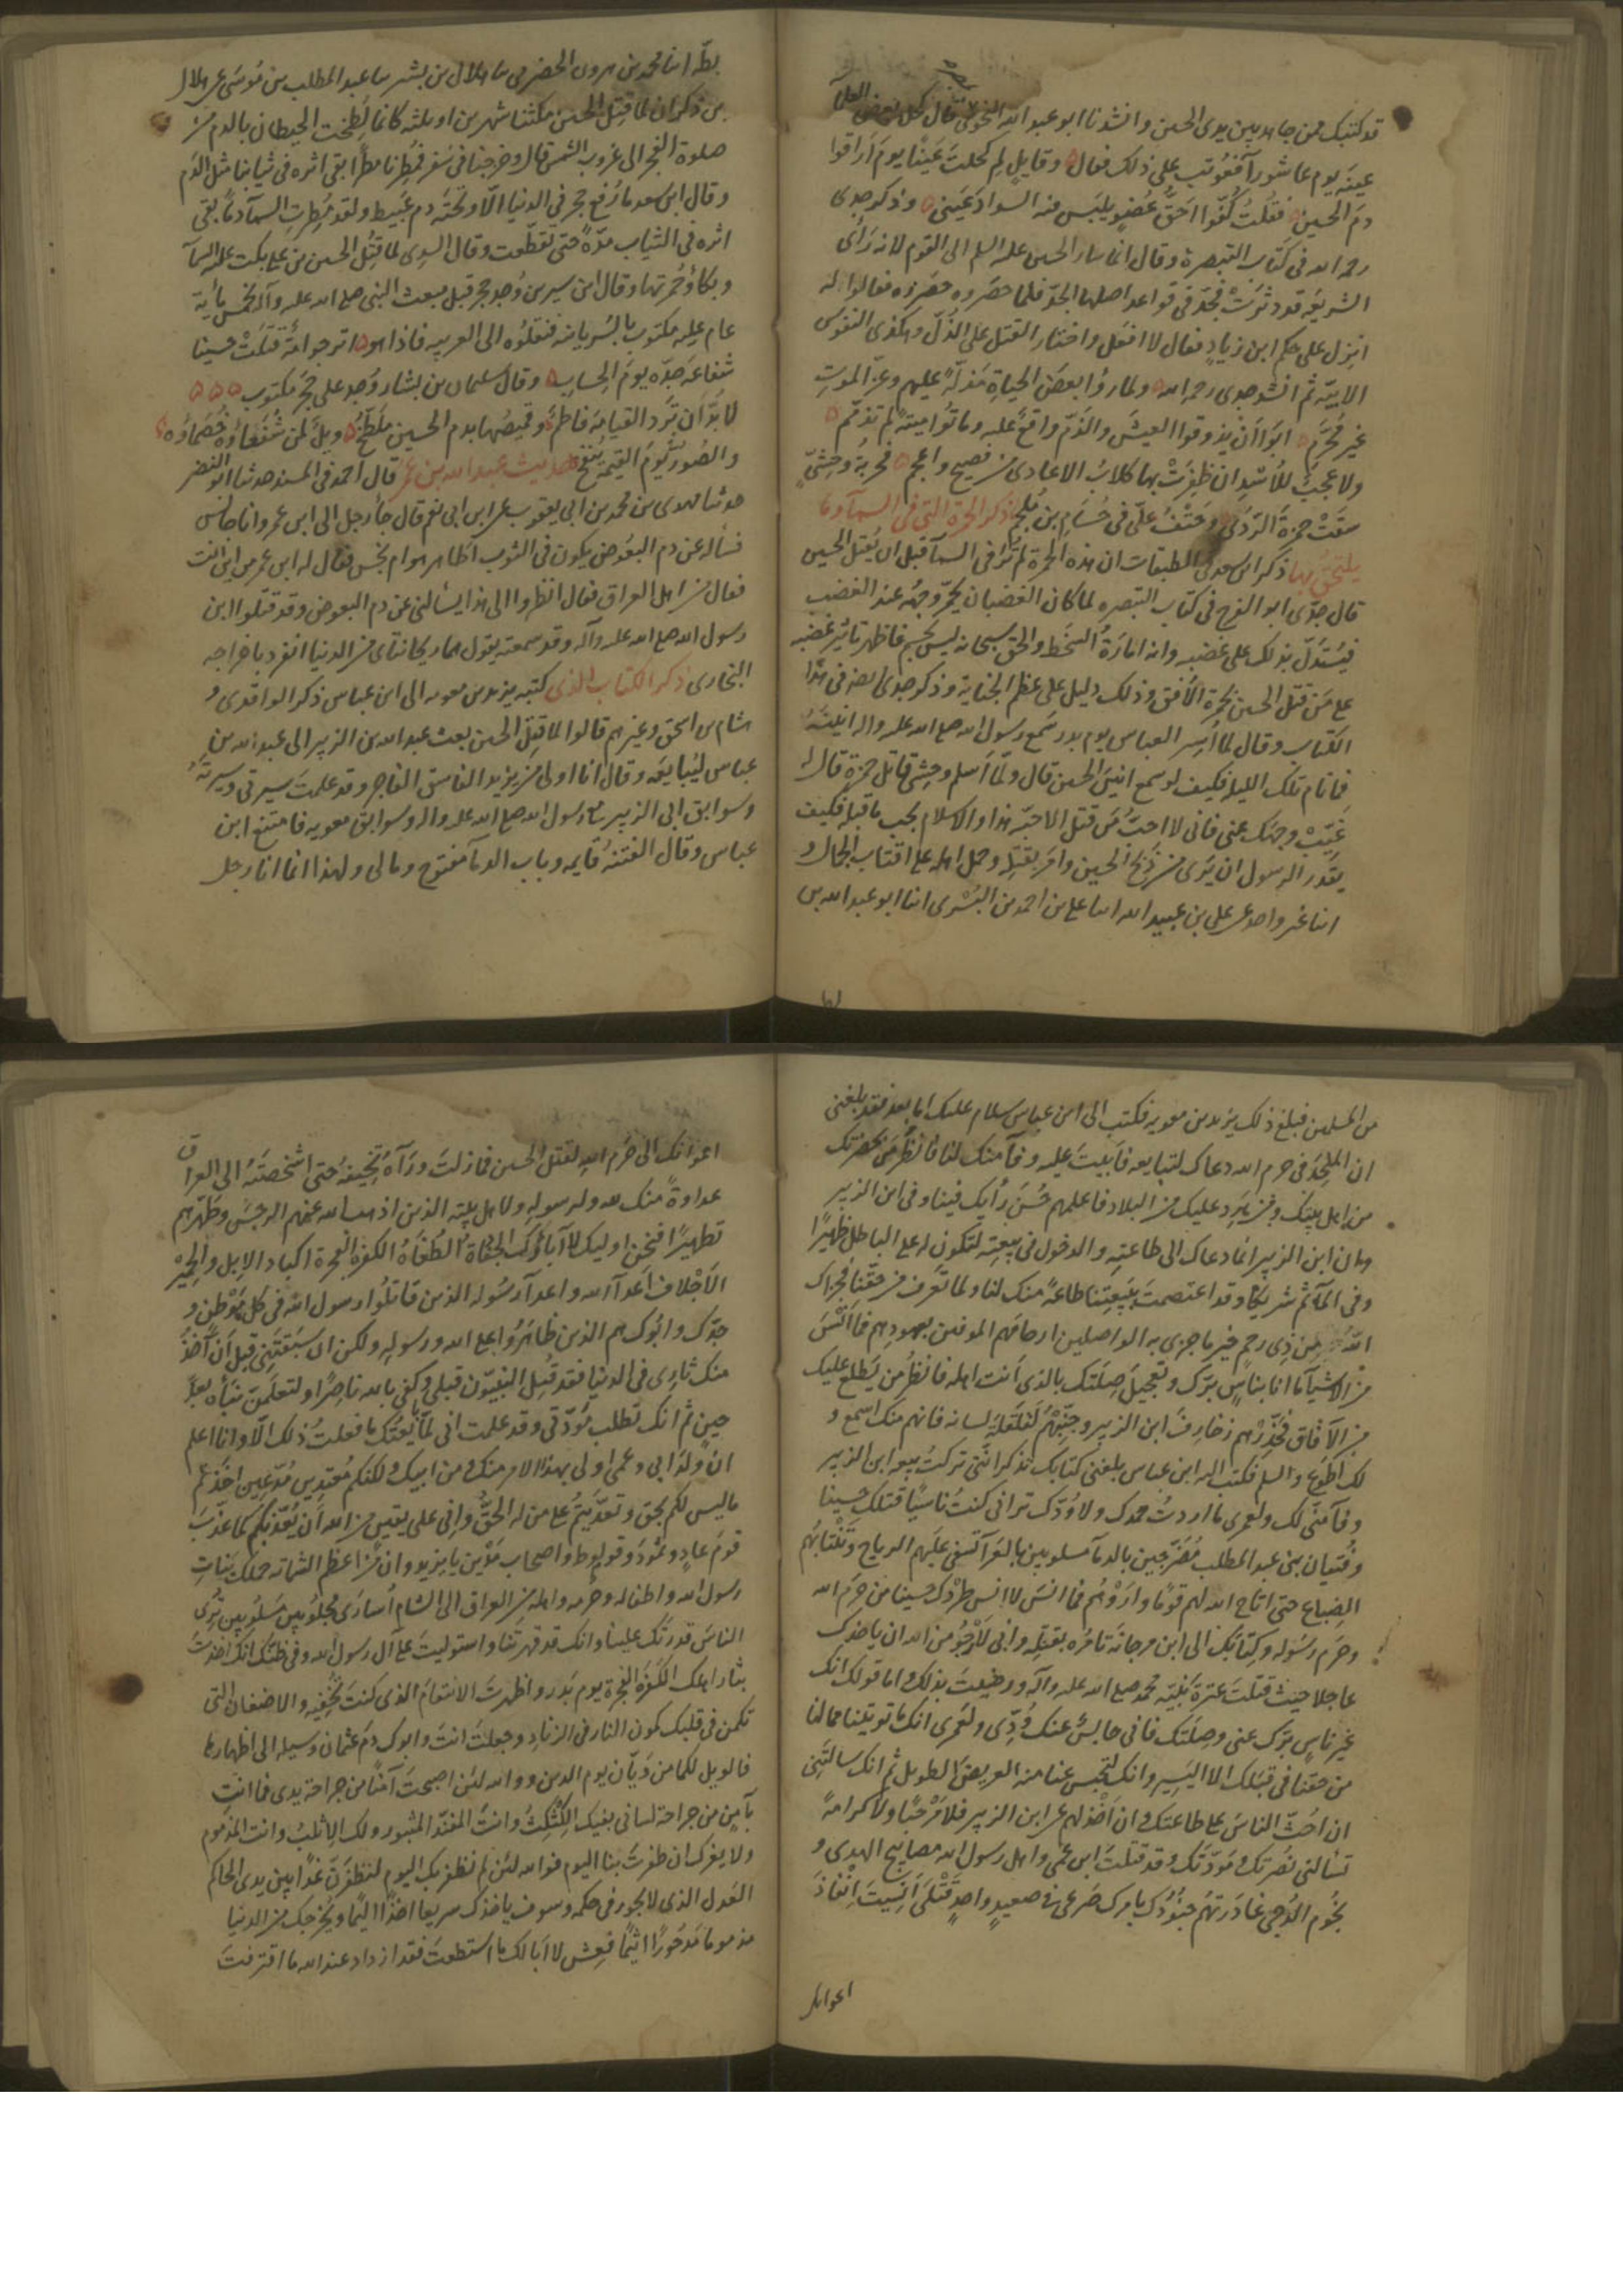 قد كتبتك ممن جاهد بين يدى الحسين وانشدنا ابو عبد الله النحوى قال كحل بعض العلمآ
عينيه يوم عاشورآ فعُوتب على ذلك فقال وقايلٍ لِم كحلتَ عَيْنًا يومَ اراقوا
دمَ الحسين فقلتُ كُفّوا احَقُّ عُضوٍ يلبَس فيه السوادَ عَيْنى وذكر جدى
رحمه الله فى كتاب التبصرة وقال انما سار الحسين عليه السلم الى القوم لانه رَأى
الشريعَه قد دثرتْ فجدّ فى قواعد اصلها الجدّ فلما حضروه حصروه فقالوا له
انزل على حكم ابن زيادٍ فقال لا افعل واختار القتل على الذلّ وهكذى النفوس
الابيّة ثم انشد جدى رحمه الله ولما رأوا بعض الحياة مذلّةً عليهم وعزّ الموتِ
غير مُحَرّمِ ابَوا اَن يذوقوا العيشَ والذمّ واقعٌ عليه وماتوا ميتةً لم تذمّم
ولا عجبٌ للأُسْدِ ان ظفِرَتْ بها كلابُ الاعادى من فصيح واعجم فحربةُ وحشىٍّ
سقَتْ حمزةَ الرّدَى وحتفُ علىّ فى حُسَام بن مُلجمِ ذكر الحمرة التى فى السمآ وما
يلتحقُ بها ذكر ابن سعد فى الطبقات ان هذه الحمرة لم تُرَ فى السمآ قبل ان يُقتل الحسين
قال جدّى ابو الفرج فى كتاب التبصره لما كان الغضبان يحمرّ وجهُه عند الغضب
فيُستدَلّ بذلك على غضبه وانه امارَةُ السّخَط والحق سبحانه ليس بجسمٍ فاظهر تاثيْر غضبه
على مَن قتل الحسين بحمرة الاُفق وذلك دليل على عظم الجناية وذكر جدى ايضا فى هذا
الكتاب وقال لما اُسِر العباس يوم بدر سَمِع رسول الله صلى الله عليه واله انينَهُ
فما نام تلك الليله فكيف لو سمع انينَ الحسين قال ولّما اَسلم وحشى قاتل حمزة قال له
غيّبْ وجهك عنى فانى لا احبُّ مَن قتل الاحبّه هذا والاسلام يجب ما قبله فكيف
يقدر الرسول ان يَرى من ذبَح الحسين وامَر بقتلِه وحمل اهله على اقتاب الجمال و
انبا غير واحد عن على بن عبيد الله انبا على بن احمد بن البُسْرى انبا ابو عبد الله بن
بطّه انبا محمد بن هرون الحضرمى ثنا هلال بن بشر ثنا عبد المطلب بن موسَى عن هلال
بن ذكوان لما قُتِل الحسين مكثنا شهرين او ثلثه كانما لُطِخت الحيطان بالدم من
صلوة الفجر الى غروب الشمس قال وخرجنا فى سَفر فمُطِرنا مطرًا بقى اثره فى ثيابنا مثل الدَم
وقال ابن سعد ما رُفع حجر فى الدنيا الّا وتحتَه دم عَبيط ولقد مُطِرتِ السمآ دمًا بقى
اثره فى الثياب مدّةً حتى تقطّعت وقال السدى لما قُتِل الحسين بن على بكت عليه السمآ
وبكاؤ حُمرتها وقال ابن سيرين وُجد حجر قبل مبعث النبى صلى الله عليه وآله بخمس مأية
عام عليه مكتوب بالسريانيه فنقلوُه الى العربيه فاذا هو اترجوا اُمّةٌ قتلتْ حسينا
شفاعَة جَدّه يومَ الحِسَاب وقال سليمان بن يشار وُجد على حجر مكتوب
لا بدّ اَن تَرِد القيامَة فاطمُ وقميصُها بدم الحسين ملطّخ ويلٌ لمن شُفعَاؤه خُصَماؤه
والصُور يومَ القيمة يُنفخُ حديث عبد الله بن عمر قال احمد فى المسند حدثنا ابو النضر
حدثنا مهدى بن محمد بن ابى يعقوب عن ابن ابى نعم قال جآ رجل الى ابن عمر وانا جالس
فسأله عن دم البعُوض يكون فى الثوب اطاهر هو ام نجس فقال له ابن عمر من اين انت
فقال من اهل العراق فقال انظروا الى هذا يسألنى عن دم البعوض وقد قتلوا ابن
رسول الله صلى الله عليه وآله وقد سمعته يقول هما ريحانتاى من الدنيا انفرد باخراجه
البخارى ذكر الكتاب الذى كتبه يزيد بن معويه الى ابن عباس ذكر الواقدى و
هشام بن اسحق وغيرهم قالوا لما قُتِل الحسين بعث عبد الله بن الزبير الى عبد الله بن
عباس ليُبايعَه وقال انا اولى من يزيد الفاسق الفاجر وقد علمت سيرتى وسيرتهُ
وسوابق ابى الزبير مع رسول الله صلى الله عليه واله وسوابق معويه فامتنع ابن
عباس وقال الفتنهُ قايمه وباب الدمآ مفتوح ومالى ولهذا انما انا رجل
من المسلمين فبلغ ذلك يزيد بن معويه فكتب الى ابن عباس سلام عليك اما بعد فقد بلغنى
ان الملحِدَ فى حرم الله دعاك لتبايعه فاَبيتَ عليه وفآ منك لنا فانظر مَن بحضرتك
من اهل بيتك ومن يرِد عليك من البلاد فاعلمهم حُسنَ رأيك فينا وفى ابن الزبير
وان ابن الزبير انما دعاك الى طاعتِه والدخول فى بيعتِه لتكون له على الباطل ظهيرًا
وفى المآثم شريكًا وقد اعتصمتَ ببيعتِنا طاعةً منك لنا ولما تَعرف من حقّنا فجزاك
اللهُ من ذِى رحمٍ خير ما جزى به الواصلين ارحامَهم الموفين بعهودهم فما اَنسَ
من الاشيآ ما انا بناسٍ برّك وتعجيلَ صِلَتك بالذى اَنت اهله فانظر من يَطلع عليك
من الآفاق فحذّرهم زخارفَ ابن الزبير وجنّبْهم لَقلَقةَ لسانه فانهم منك اسمع و
لك اطوَع والسلم فكتب اليه ابن عباس بلغنى كتابك تذكر اَنّنى تركتُ بيعه ابن الزبير
وفآ منّى لك ولعمرى ما اردتُ حمدك ولا وُدّك ترانى كنتُ ناسيًا قتلك حُسينا
وفتيان بنى عبد المطلب مُضَرّجين بالدمآ مسلوبين بالعرآ تسفى عليهم الرياح وتنتابُهم
الضباع حتى اتاح الله لهم قومًا وارَوْهُم فما انسَ لا انس طردك حسينا من حرَم الله
وحرَم رسُوله وكتابَك الى ابن مرجانَة تامُره بقتلِه وانى لَارْجُو من الله ان ياخذك
عاجلا حيث قتلتَ عترةَ نبيّه محمد صلى الله عليه وآله ورضيتَ بذلك واما قولك انك
غير ناسٍ برّك عنى وصِلَتَك فانى حابسٌ عنك وُدّى ولعمرى انك ما توتينا مما لنا
من حقنا فى قبَلك الا اليَسِير وانك لتحبس عنا منه العريضَ الطويل ثم انك سالتَنى
ان احُثّ الناسَ على طاعتك وان اَخْذلهم عن ابن الزبير فلا مَرْحَبًا ولا كرامةً
تسألنى نصرتك ومَودّتك وقد قتلتَ ابن عمى واهل رسول الله مصابيح الهدى و
نجوم الدُجى غادَرتهُم جنُودُك بامرك صَرعى فى صعيدٍ واحدٍ قتْلَى اَنَسِيتَ اِنْفاذَ
اعوانك
اعوانك الى حَرَم اللهِ لقتل الحسين فما زلتَ ورآه تُخِيفهُ حتى اشخصتَهُ الى العراق
عداوةً منك لله ولرسولِه ولاهل بيته الذين اذهب الله عنهم الرجسَ وطهّرهم
تطهيرًا فنحن اوليك لا آباؤك الجفاة الطغاة الكفرة الفجرة اكباد الابل والحمير
الاَجْلاف اَعدآ الله واعدآ رسُوله الذين قاتلوُا رسول الله فى كل مَوْطنٍ و
جدّك وابُوك هم الذين ظاهَروُا على الله ورسوله ولكن ان سَبَقتَنى قبل اَن آخُذَ
منك ثارِى فى الدنيا فقد قُتِل النبيّون قبلى وكفى بالله ناصِرًا ولتعلمُنّ نبَأه بعدَ
حينٍ ثم انك تطلب مَودّتى وقد علمت انى لمّا بايعتُك ما فعلتُ ذلك الّا وانا اعلم
انّ ولدَ ابى وعمى اولى بهذا الامر منك ومن ابيك ولكنكم مُعتدِين مُدّعِين اخذتم
ما ليس لكم بحق وتعدّيتُم على من له الحقُّ وانى على يقينٍ من الله اَن يُعذّبكُم كما عذّبَ
قومَ عادٍ وثمودَ وقوم لوط واصحابَ مَدْين يا يزيد وان من اعظم الشماته حملك بناتِ
رسول الله واطفاله وحرَمه واهله من العراق الى الشام اُسارَى مجلوُبين مسلوُبين تُرِى
الناسَ قدرَتَك علينا وانك قد قهرتَنا واستوليتَ على آل رسول الله وفى ظنّك انك اخذتَ
بثار اهلك الكفَرَة الفجرة يوم بَدر واظهرتَ الانتقامَ الذى كنتَ تخفِيه والاضغان التى
تكمن فى قلبك كمون النار فى الزناد وجعلتَ انتَ وابوك دمَ عثمان وسيله الى اظهارها
فالويل لكما من ديّان يوم الدين ووالله لئن اصبحتَ آمنًا من جراحة يدى فما انت
بآمِنٍ من جراحة لسانى بفيك الكثكثُ وانت المفنّد المثبور ولك الاثلبُ وانت المذموم
ولا يغرك ان ظفرتَ بنا اليوم فوالله لئن لم نظفر بك اليوم لنظفرَنّ غدًا بين يدى الحاكم
العَدل الذى لا يجور فى حكمه وسوف ياخذك سريعا اخذًا اليمًا ويُخرجك من الدنيا
مذمومًا مَدحُورًا اثيمًا فعِش لا اَبا لك ما استطعتَ فقد ازداد عند الله ما اقترفتَ